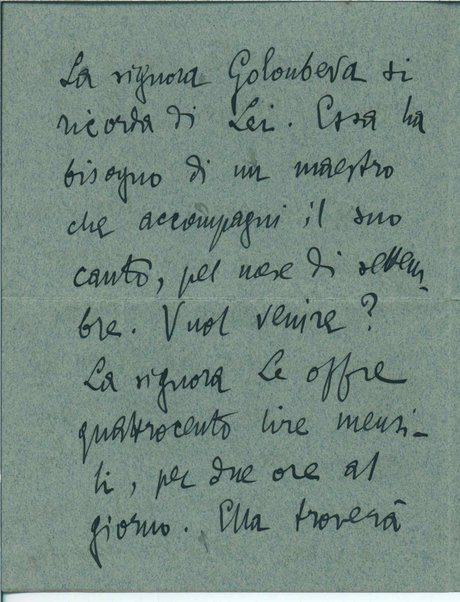 La signora Goloubeva si
ricorda di Lei. Essa ha
bisogno di un maestro
che accompagni il suo
canto, pel mese di settem-
bre. Vuol venire?
La signora Le offre
quattrocento lire mensi-
li, per due ore al
giorno. Ella troverà